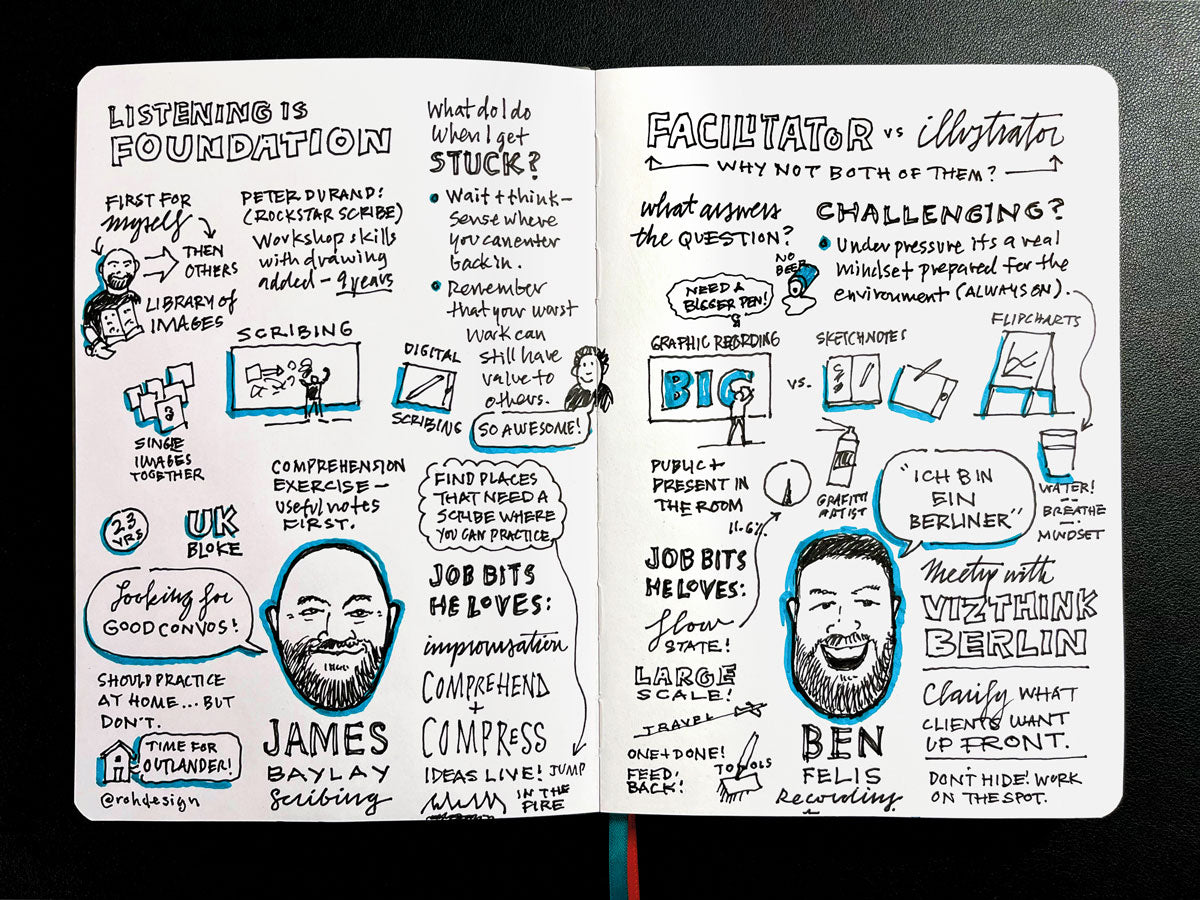 LISTENING IS
FOUNDATION
FIRST FOR
myself
THEN
OTHERS
LIBRARY of
IMAGES
PETER DURAND!
(ROCKSTAR SCRIBE)
Workshop skills
with drawing
added – 9 years
What do I do
when I get
STUCK?
• Wait + think –
Sense where
you can enter
back in.
• Remember
that your worst
work can
still have
value to
others.
SO AWESOME!
SCRIBING
DIGITAL
SCRIBING
SINGLE
IMAGES
TOGETHER
COMPREHENSION
EXERCISE –
useful notes
FIRST.
FIND PLACES
THAT NEED A
SCRIBE WHERE
YOU CAN PRACTICE
23
YRS
UK
BLOKE
Looking for
GOOD CONVOS!
SHOULD PRACTICE
AT HOME... BUT
DON'T.
TIME FOR
OUTLANDER!
@rohdesign
JAMES
BAYLAY
Scribing
JOB BITS
HE LOVES:
improvisation
COMPREHEND
+
COMPRESS
IDEAS LIVE!
JUMP
IN THE
FIRE
FACILITATOR vs illustrator
WHY NOT BOTH OF THEM?
what answers
the QUESTION?
CHALLENGING?
• Under pressure its a real
mindset prepared for the
environment (ALWAYS ON).
NO
BEER
NEED A
BIGGER PEN!
GRAPHIC RECORDING
BIG
vs.
SKETCHNOTES
FLIPCHARTS
PUBLIC +
PRESENT IN
THE ROOM
11.6%
GRAFITTI
ARTIST
"ICH BIN
EIN
BERLINER"
WATER!
BREATHE
MINDSET
JOB BITS
HE LOVES:
flow
STATE!
LARGE
SCALE!
TRAVEL
ONE + DONE!
FEED,
BACK!
TOOLS
BEN
FELIS
Recording
Meetup with
VIZTHINK
BERLIN
Clarify WHAT
CLIENTS WANT
UP FRONT.
DON'T HIDE! WORK
ON THE SPOT.